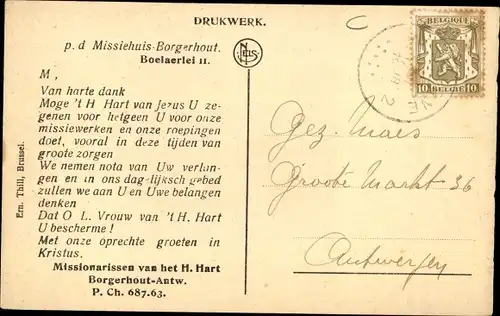 DRUKWERK.
p. d Missiehuis-Borgerhout.
Boelaerlei 11.
M,
Van harte dank
Moge 't H Hart van Jezus U ze-
genen voor hetgeen U voor onze
missiewerken en onze roepingen
doet, vooral in deze tijden van
groote zorgen
We nemen nota van Uw verlan-
gen en in ons dagelijksch gebed
zullen we aan U en Uwe belangen
denken
Dat O L. Vrouw van 't H. Hart
U bescherme !
Met onze oprechte groeten in
Kristus.
Missionarissen van het H. Hart
Borgerhout-Antw.
P. Ch. 687.63.
Ern. Thill, Brussel.
NELS
BELGIQUE
10 BELGIE 10
Gez. Maes
Groote Markt 36
Antwerpen